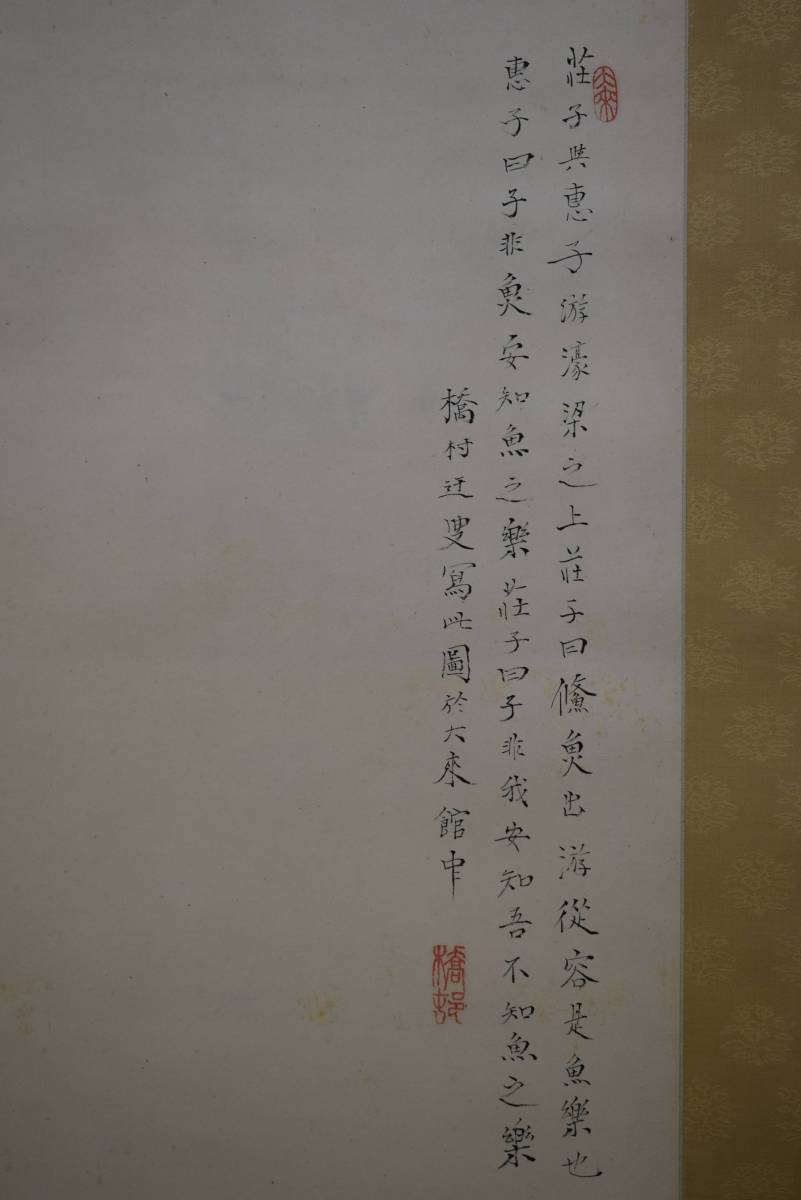 莊子與惠子游濠梁之上莊子曰鯈魚出游從容是魚樂也
惠子曰子非魚安知魚之樂莊子曰子非我安知吾不知魚之樂
橋村迂叟寫此圖於大來館中